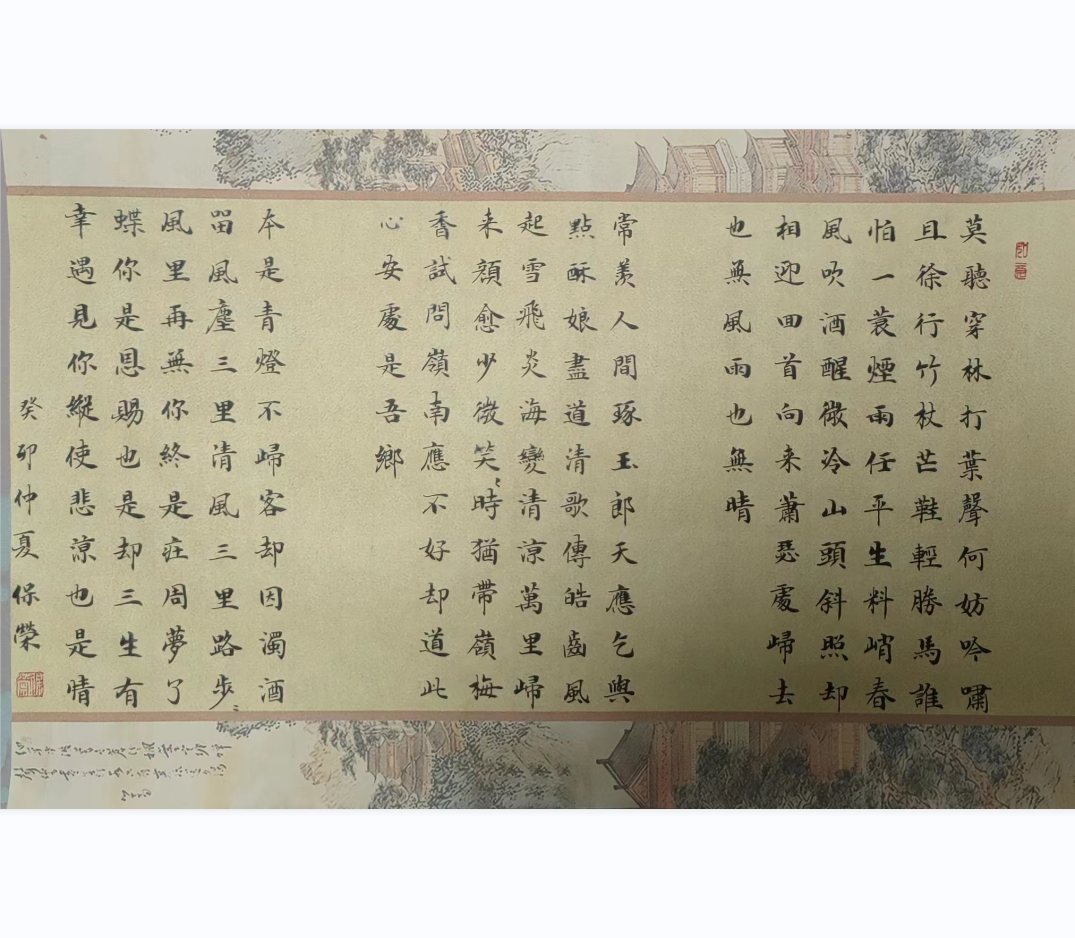 莫聽穿林打葉聲何妨吟嘯
且徐行竹杖芒鞋輕勝馬誰
怕一蓑煙雨任平生料峭春
風吹酒醒微冷山頭斜照却
相迎回首向来蕭瑟處歸去
也無風雨也無晴
常羡人間琢玉郎天應乞與
點酥娘盡道清歌傳皓齒風
起雪飛炎海變清涼萬里歸
来顔愈少微笑〻時猶帶嶺梅
香試問嶺南應不好却道此
心安處是吾鄉
本是青燈不歸客却因濁酒
留風塵三里清風三里路步〻
風里再無你終是莊周夢了
蝶你是恩賜也是却三生有
幸遇見你縱使悲涼也是情
癸卯仲夏保榮